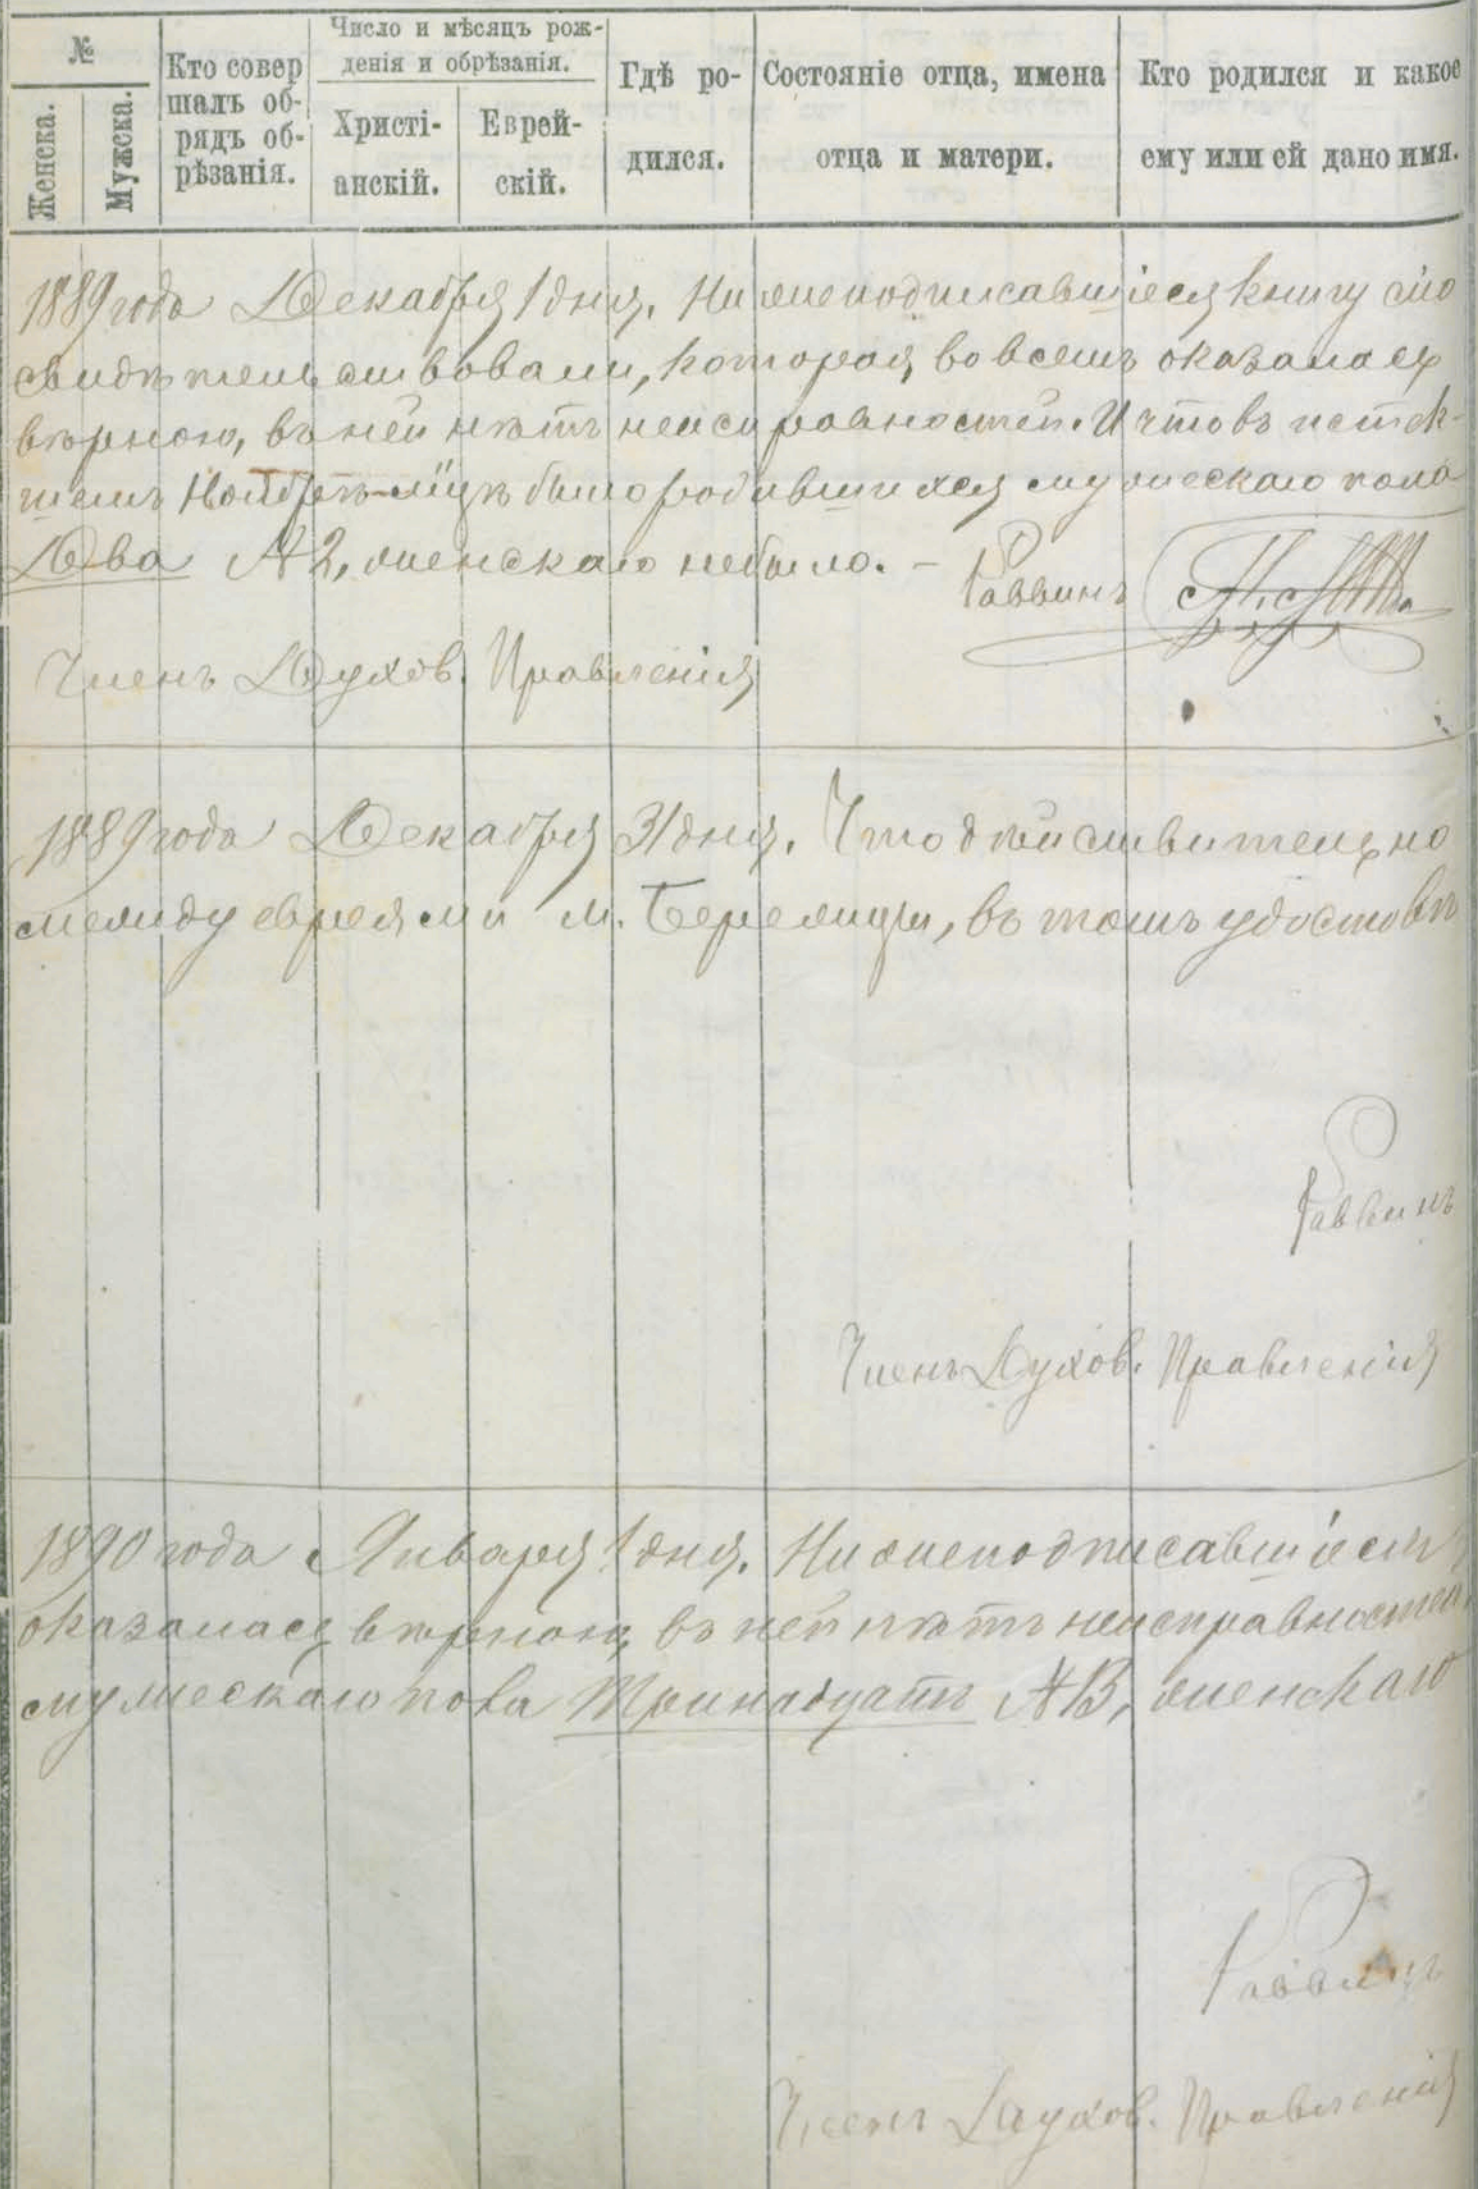 №
Женска.
Мужска.
Кто совер
шалъ об-
рядъ об-
рѣзанія.
Число и мѣсяцъ рож-
денія и обрѣзанія.
Христі-
анскій.
Еврей-
скій.
Гдѣ ро-
дился.
Состояніе отца, имена
отца и матери.
Кто родился и какое
ему или ей дано имя.
1889 года Декабря 1 дня. Нижеподписавшіеся книгу сію
свидѣтельствовали, которая, во всемъ оказалась
вѣрною, въ ней нѣтъ неисправностей. И что въ истек-
шемъ Ноябрѣ м-цѣ было родившихся мужескаго пола
Два № 2, женскаго небыло. –
Раввинъ
Членъ Духов. Правленія
1889 года Декабря 31 дня. Что дѣйствительно
между евреями м. Бережцы, въ томъ удостовѣ
Раввинъ
Членъ Духов. Правленія
1890 года Января 1 дня. Нижеподписавшіеся
оказалась вѣрною, въ ней нѣтъ неисправностей
мужескаго пола Тринадцать № 13, женскаго
Раввинъ
Членъ Духов. Правленія